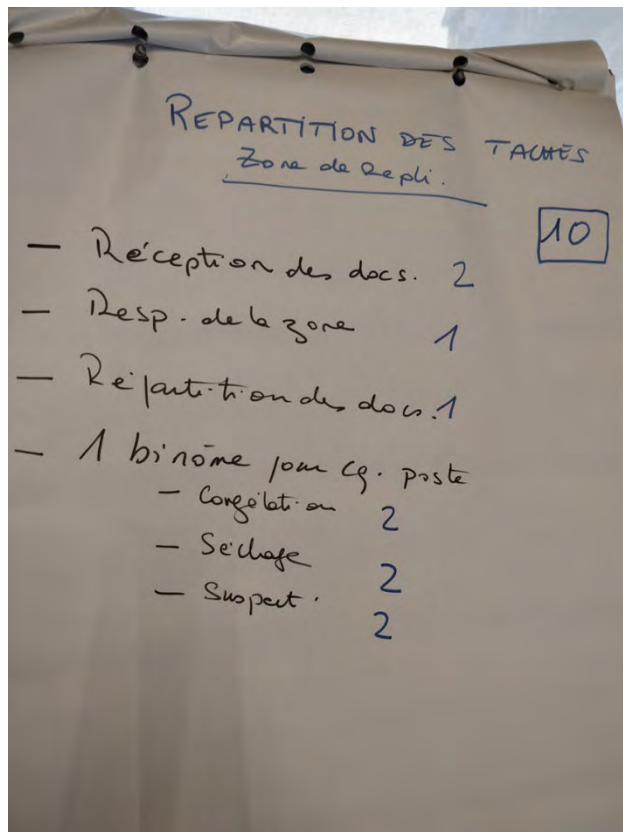 REPARTITION DES TACHES
Zone de Repli.
10
— Réception des docs. 2
— Resp. de la zone 1
— Répartition des docs. 1
— 1 binôme pour cq. poste
— Congélation 2
— Séchage 2
— Suspect. 2